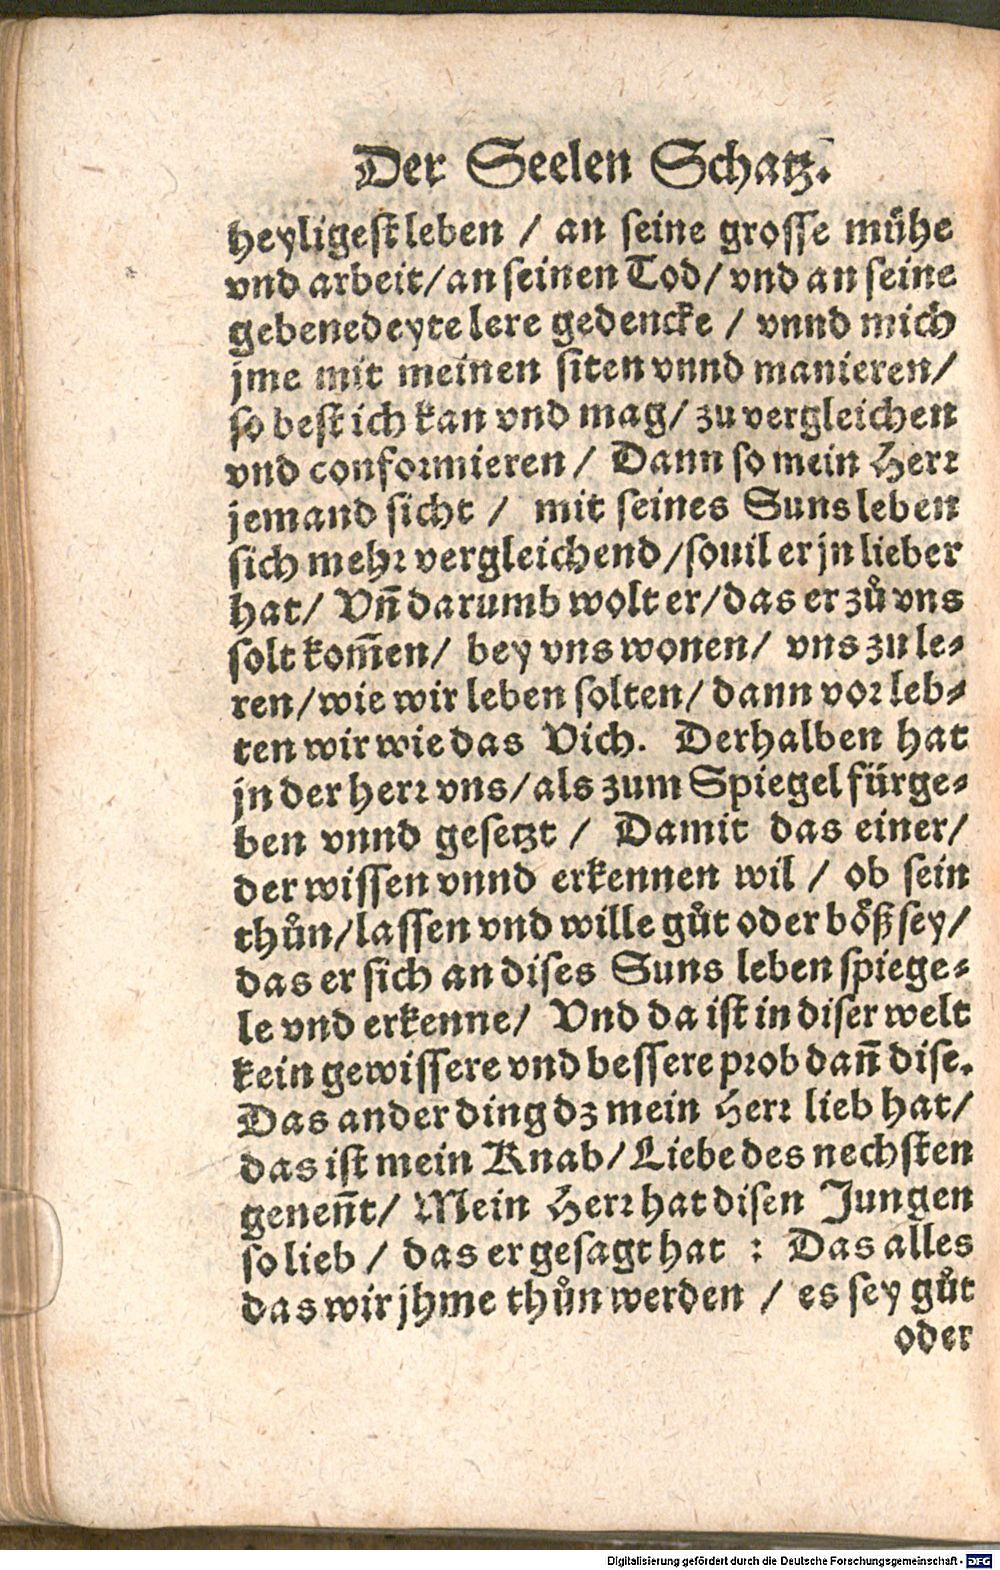 Der Seelen Schatz.
heyligest leben / an seine grosse mühe
vnd arbeit / an seinen Tod / vnd an seine
gebenedeyte lere gedencke / vnnd mich
jme mit meinen siten vnnd manieren /
so best ich kan vnd mag / zu vergleichen
vnd conformieren / Dann so mein Herr
jemand sicht / mit seines Suns leben
sich mehr vergleichend / souil er jn lieber
hat / Vñ darumb wolt er / das er zů vns
solt kom̃en / bey vns wonen / vns zu le-
ren / wie wir leben solten / dann vor leb-
ten wir wie das Vich. Derhalben hat
jn der herr vns / als zum Spiegel fürge-
ben vnnd gesetzt / Damit das einer /
der wissen vnnd erkennen wil / ob sein
thůn / lassen vnd wille gůt oder böß sey /
das er sich an dises Suns leben spiege-
le vnd erkenne / Vnd da ist in diser welt
kein gewissere vnd bessere prob dañ dise.
Das ander ding dz mein Herr lieb hat /
das ist mein Knab / Liebe des nechsten
geneñt / Mein Herr hat disen Jungen
so lieb / das er gesagt hat : Das alles
das wir jhme thůn werden / es sey gůt
oder
Digitalisierung gefördert durch die Deutsche Forschungsgemeinschaft - DFG